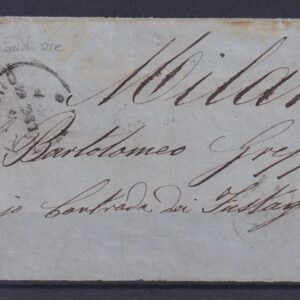 Milan
Bartolomeo Grepp
io Contrada dei Fustag